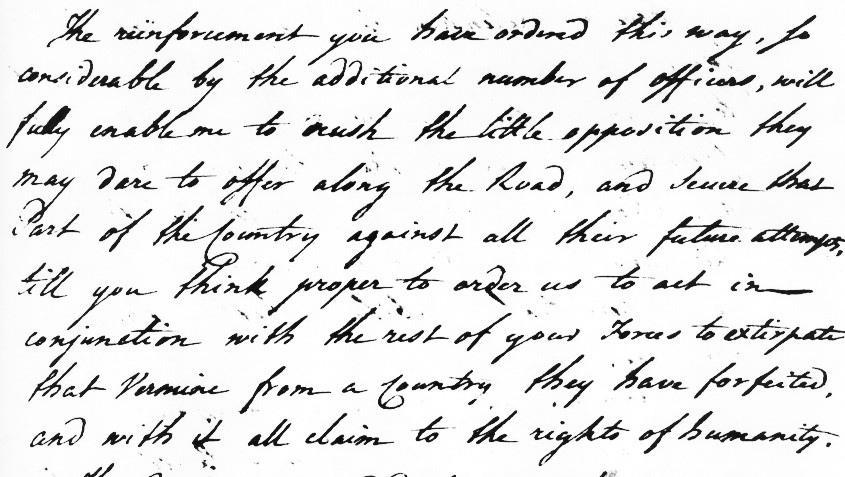 The reinforcement you have ordered this way, so
considerable by the additional number of officers, will
fully enable me to crush the little opposition they
may dare to offer along the Road, and secure that
Part of the Country against all their future attempts,
till you think proper to order us to act in
conjunction with the rest of your Forces to extirpate
that Vermine from a Country they have forfeited,
and with it all claim to the rights of humanity.